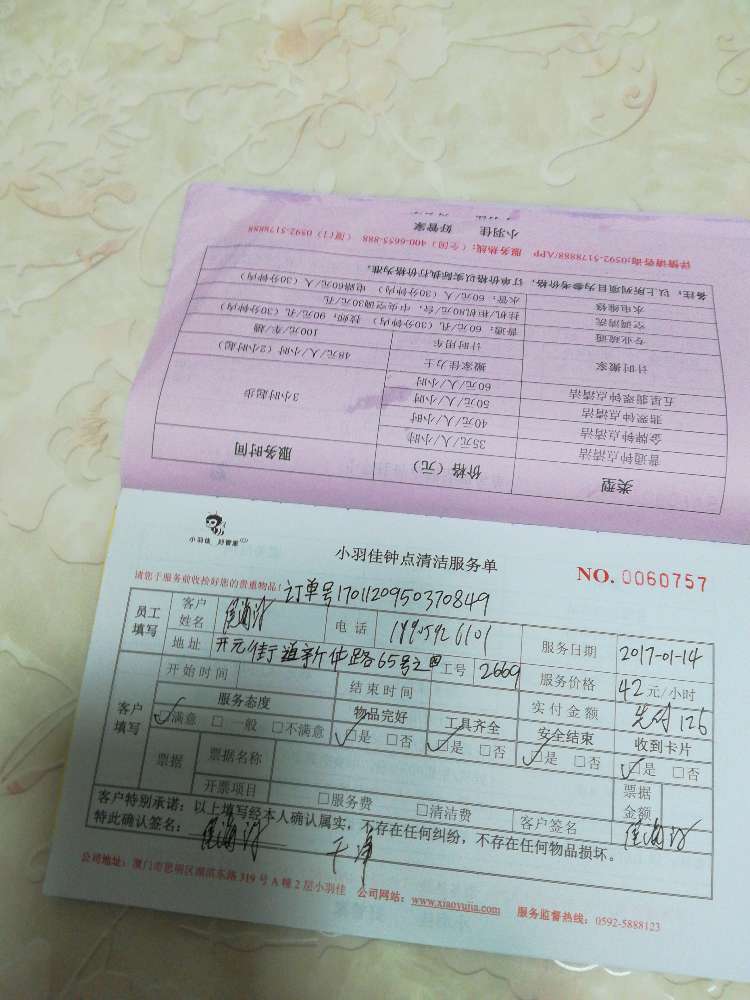 小羽佳 好管家
详情请咨询:0592-5178888/APP 服务热线:(全国)400-6655-888 (厦门)0592-5178888
备注:以上所列项目为参考价格,订单价格以实际执行价格为准。
水电维修 水管:60元/人(30分钟内) 电路60元/人(30分钟内)
空调清洗 挂机/柜机80元/台;中央空调30元/孔
专业疏通 普通:60元/孔(30分钟内) 技师:90元/孔(30分钟内)
计时搬家 计时用车 100元/车/趟
搬家佳力士 48元/人/小时(2小时起)
五星翡翠钟点清洁 60元/人/小时 3小时起步
翡翠钟点清洁 50元/人/小时
金牌钟点清洁 40元/人/小时
普通钟点清洁 35元/人/小时
类型 价格(元) 服务时间
小羽佳 好管家
小羽佳钟点清洁服务单
NO. 0060757
请您于服务前收捡好您的贵重物品!
订单号1701120950370849
员工填写 客户姓名 电话 服务日期 2017-01-14
地址 开元街道新华路65号之 工号 2669 服务价格 42元/小时
客户填写 开始时间 结束时间 实付金额 126
服务态度 物品完好 工具齐全 安全结束 收到卡片
□满意 □一般 □不满意 □是 □否 □是 □否 □是 □否 □是 □否
票据 票据名称 票据金额
开票项目 □服务费 □清洁费 客户签名
客户特别承诺:以上填写经本人确认属实,不存在任何纠纷,不存在任何物品损坏。
特此确认签名: 干净
公司地址:厦门市思明区湖滨东路319号A幢2层小羽佳 公司网站:www.xiaoyujia.com 服务监督热线:0592-5888123